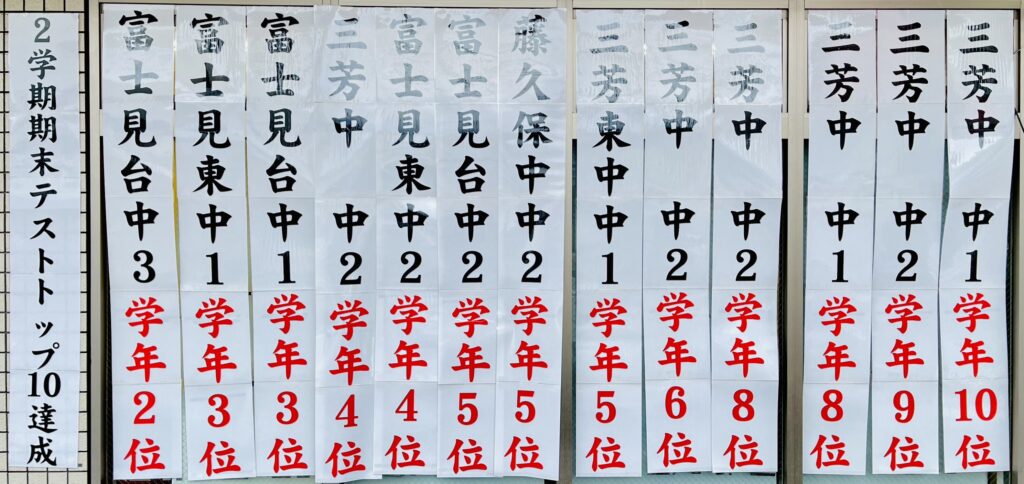 2学期期末テストトップ10達成
富士見台中中3学年2位
富士見東中中1学年3位
富士見台中中1学年3位
三芳中中2学年4位
富士見東中中2学年4位
富士見台中中2学年5位
藤久保中中2学年5位
三芳東中中1学年5位
三芳中中2学年6位
三芳中中2学年8位
三芳中中1学年8位
三芳中中2学年9位
三芳中中1学年10位